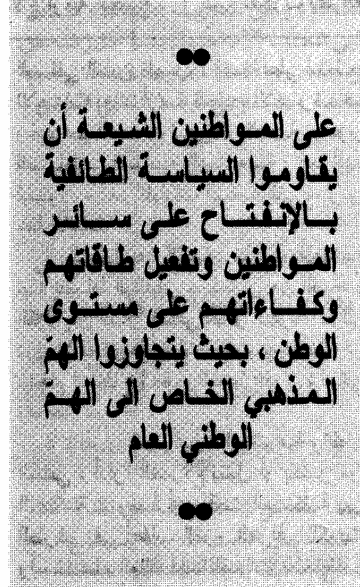 على المواطنين الشيعة أن
يقاوموا السياسة الطائفية
بالإنفتاح على سائر
المواطنين وتفعيل طاقاتهم
وكفاءاتهم على مستوى
الوطن ، بحيث يتجاوزوا الهمّ
المذهبي الخاص الى الهمّ
الوطني العام